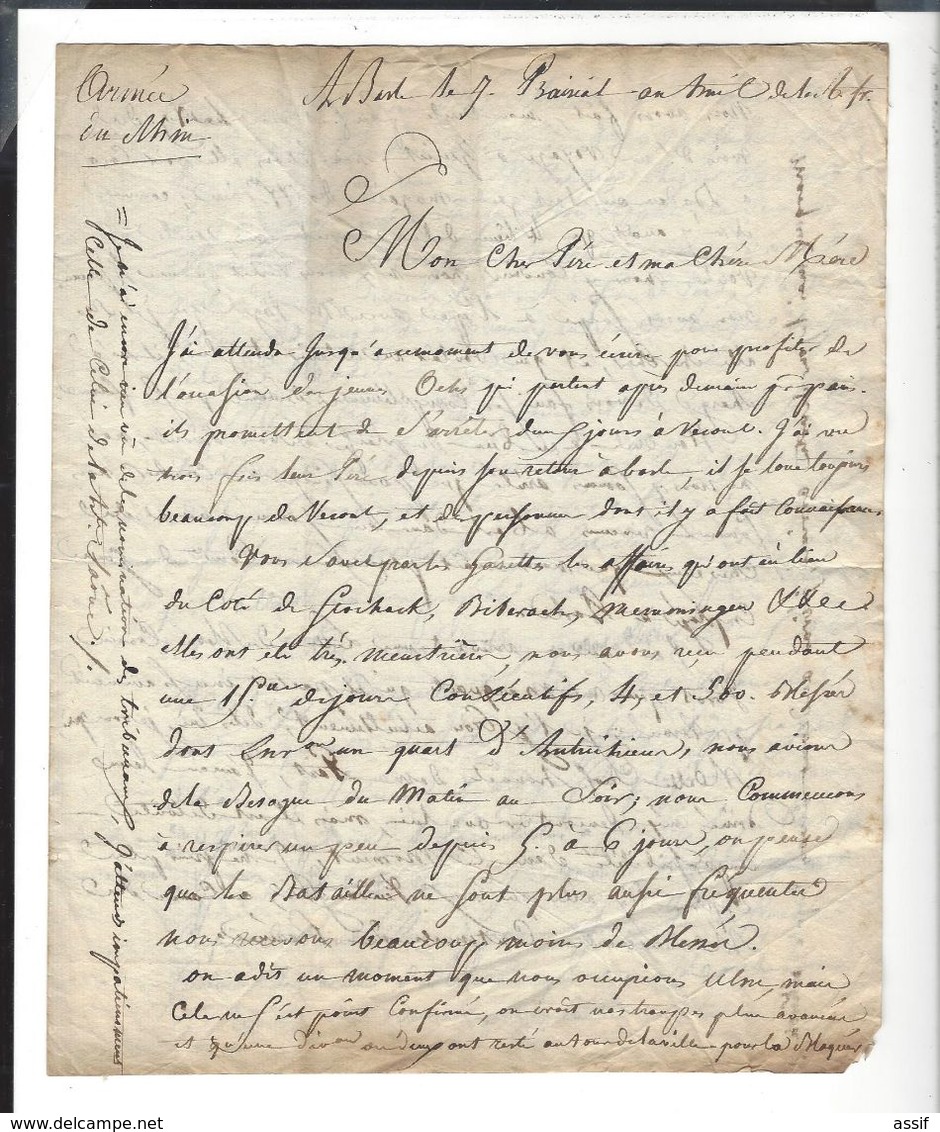 Armée
du Rhin
A Basle le 7. Prairial an huit de la R. fr.
Mon Cher Père et ma Chère Mère
J'ai attendu Jusqu'a ce moment de vous écrire pour profiter de
l'occasion des jeunes Ochs qui partent après demain pr. paris.
ils promettent de S'arrêter deux jours à Vesoul. J'ai vu
trois fois leur Père depuis son retour à basle, il se loue toujours
beaucoup de Vesoul, et des personnes dont il y a fait Connaissance.
Vous Savez par les Gazettes les affaires qui ont eu lieu
du Coté de Stockack, Biberach, Memmingen &&&
elles ont été très meurtrières, nous avons reçu pendant
une 15.ne de jours Consécutifs, 4, et 500. blessés
dont Env.on un quart D'Autrichiens, nous avions
de la Besogne du Matin au Soir; nous Commencons
à respirer un peu depuis 5. à 6 jours, on pense
que les Batailles ne Sont plus aussi fréquentes
nous recevons beaucoup moins de Blessés.
on a dit un moment que nous occupions Ulm, mais
Cela ne S'est point Confirmé, on croit nos troupes plus avancées
et qu'une Div.on ou deux ont resté autour de la ville pour la Bloquer
= Je n'ai encore rien vû de la nomination des tribunaux, J'attends impatiemment
Celle de Celui de la h.te Saône ./.
assif